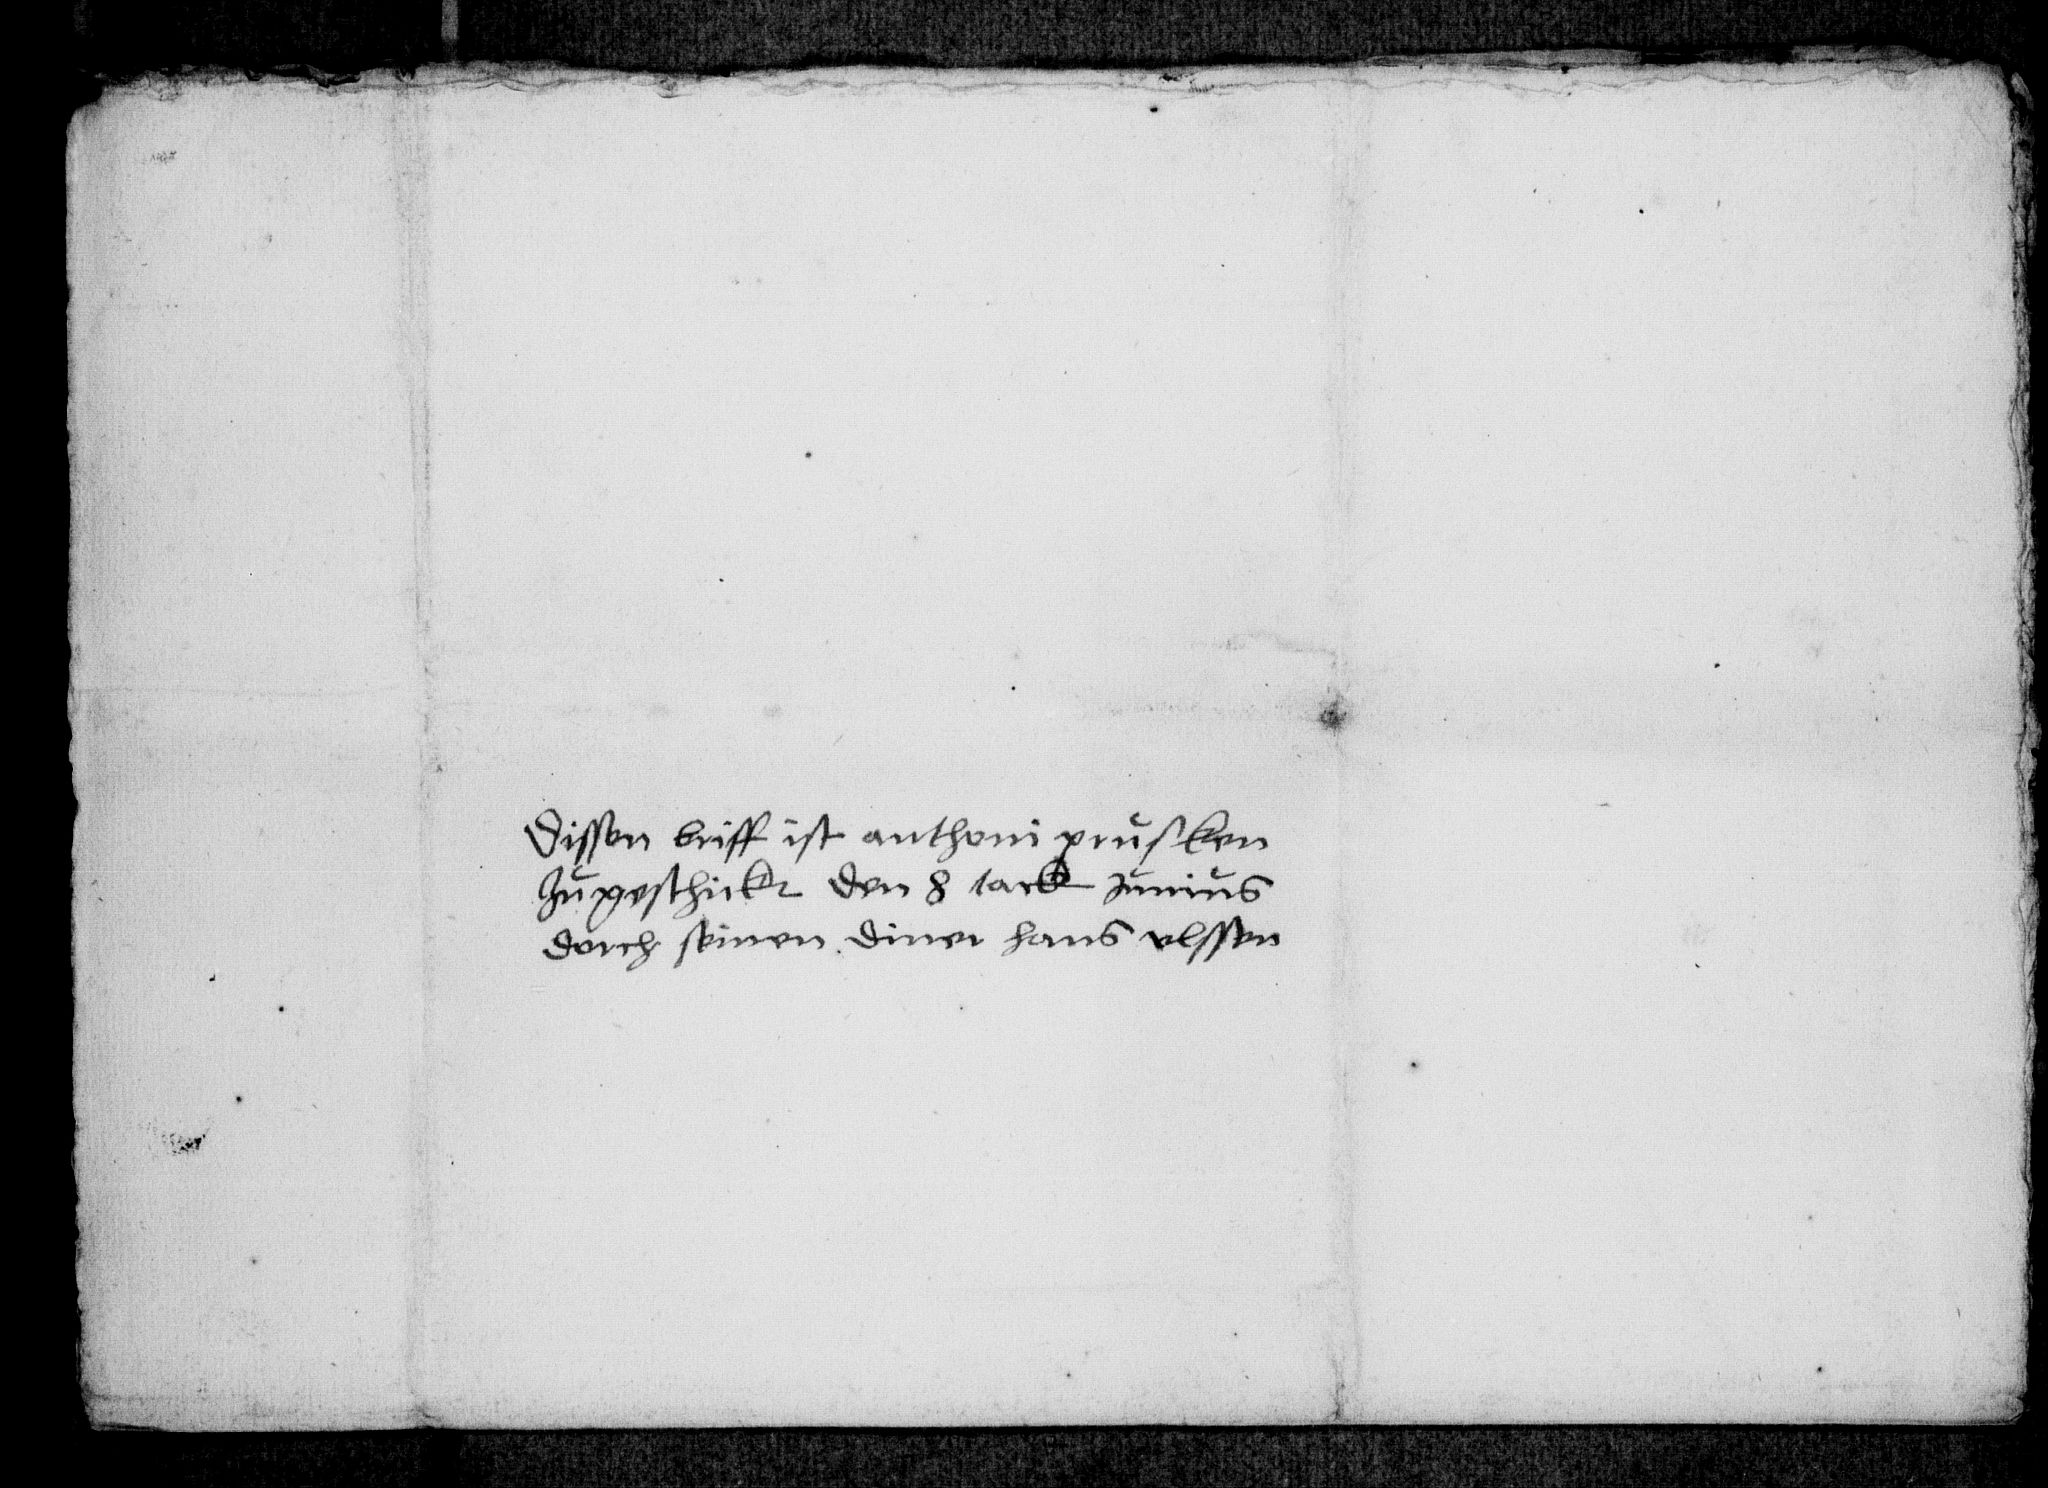 Dissen briff ist anthoni prusken
Zu geschickt den 8 tack Junius
dorch seinen diner hans vlssen